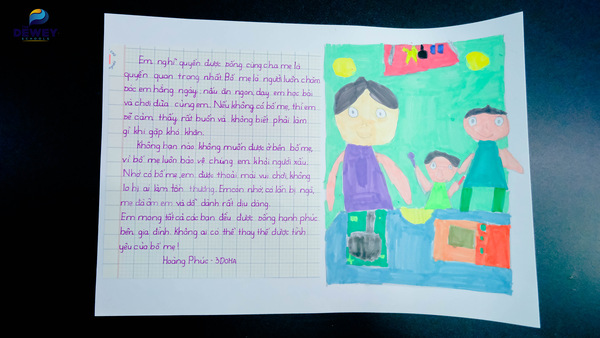 DEWEY
SCHOOLS
Em nghĩ quyền được sống cùng cha mẹ là
quyền quan trọng nhất. Bố mẹ là người luôn chăm
sóc em hằng ngày: nấu ăn ngon, dạy em học bài
và chơi đùa cùng em. Nếu không có bố mẹ, thì em
sẽ cảm thấy rất buồn và không biết phải làm
gì khi gặp khó khăn.
Không bạn nào không muốn được ở bên bố mẹ,
vì bố mẹ luôn bảo vệ chúng em khỏi người xấu.
Nhờ có bố mẹ, em được thoải mái vui chơi, không
lo bị ai làm tổn thương. Em còn nhớ, có lần bị ngã,
mẹ đã ôm em và dỗ dành rất dịu dàng.
Em mong tất cả các bạn đều được sống hạnh phúc
bên gia đình. Không ai có thể thay thế được tình
yêu của bố mẹ!
Hoàng Phúc - 3DOHA